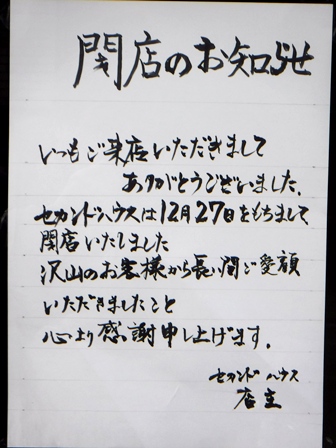 閉店のお知らせ
いつもご来店いただきまして
ありがとうございました。
セカンドハウスは12月27日をもちまして
閉店いたしました
沢山のお客様から長い間ご愛顧
いただきましたこと
心より感謝申し上げます。
セカンドハウス
店主